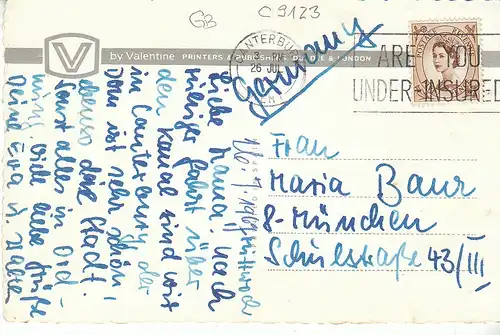 GB
C 9123
by Valentine PRINTERS & PUBLISHERS, DUNDEE & LONDON
CANTERBURY
26 JUL
ARE YOU
UNDER-INSURED
Germany
26. 7. 1967 Mittwoch
Liebe Mama! Nach
ruhiger Fahrt über
den Kanal sind wir
in Canterbury, der
Dom ist sehr schön,
ebenso die Stadt.
Sonst alles in Ord-
nung. Viele liebe Grüße
Deine Eva u.
Frau
Maria Baur
8-München
Schulstraße 43/III